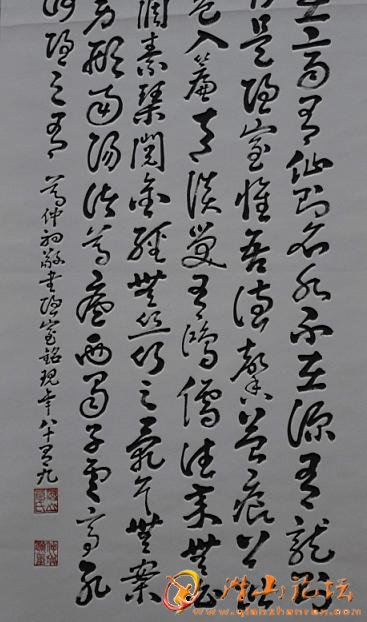 在高有仙則名水不在深有龍則
斯是陋室惟吾德馨苔痕上階
色入簾青談笑有鴻儒往來無白
調素琴閱金經無絲竹之亂耳無案
勞形南陽諸葛廬西蜀子雲亭孔
何陋之有
仲敬書陋室銘現年八十有九
潜山论坛
www.qianshanren.com